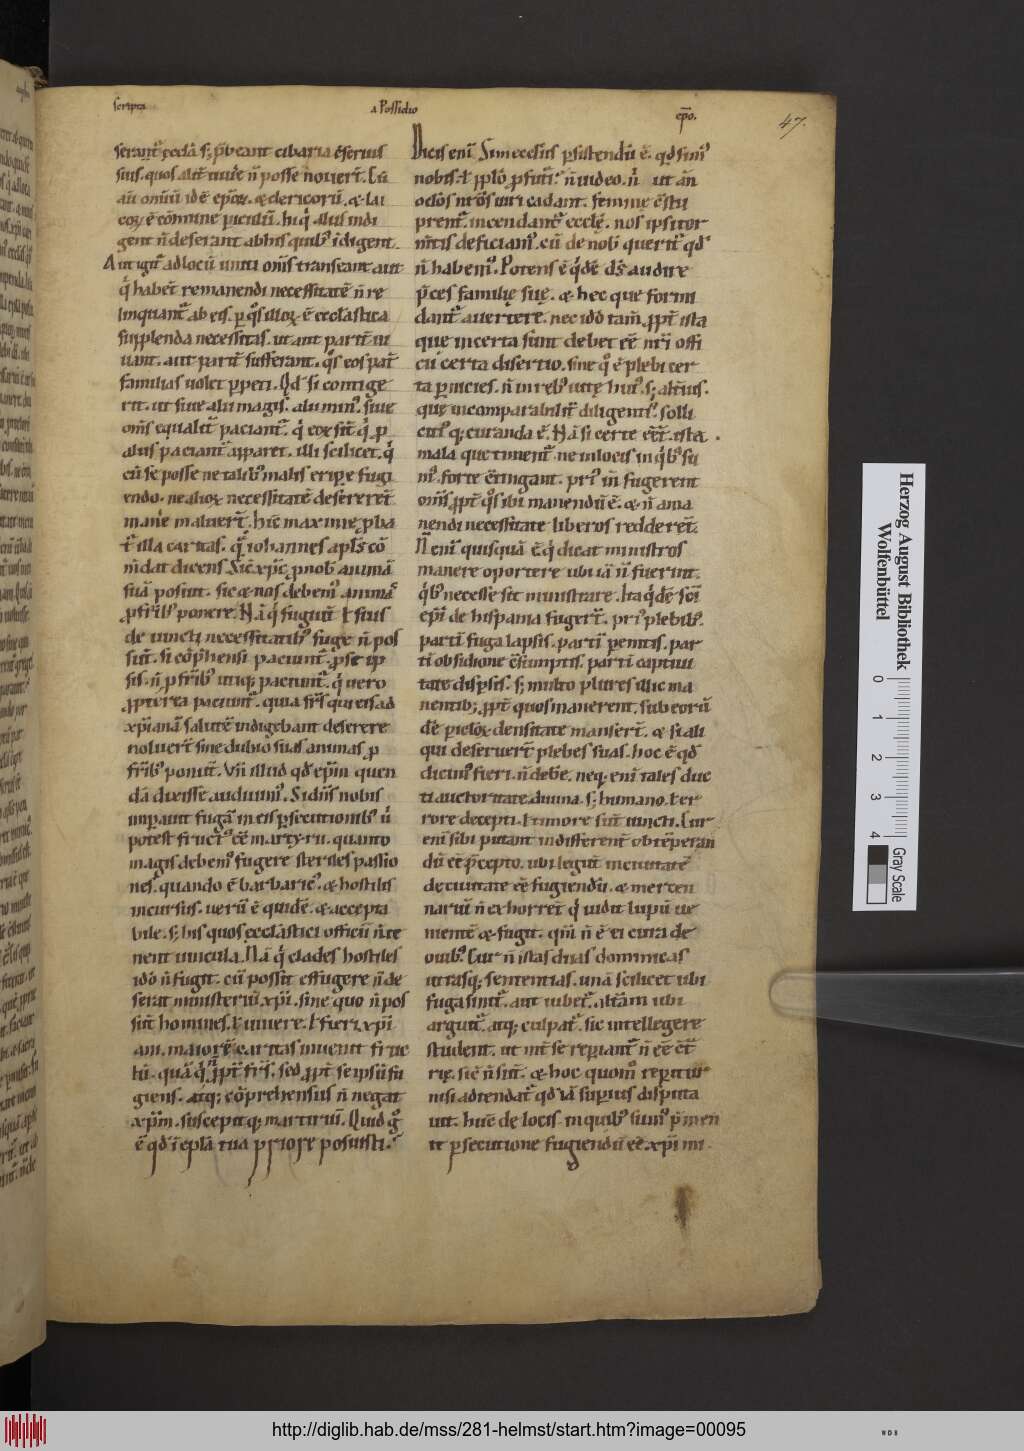 scripta
a Possidio
ep̄o.
47.
serant̄ ęcclā s; p̄beant cibaria c̄seruis
suis. quos alit̄ uiue n̄ posse nouert̄. Cū
aū om̄iū idē ep̄oꝝ. & clericorū. & lai
coꝝ ē cōmune piculū. hi qͥ aliis indi
gent n̄ deserant᷑ ab his quibꝰ īdigent.
Aut igit᷑ ad locū uniti om̄s transeant aut
qͥ habēt remanendi necessitatē n̄ re
linquant᷑ ab eis. ꝑ qͦs illoꝝ ē ecclastica
supplenda necessitas. ut aut parit̄ ui
uant. aut parit̄ sufferant. qͦs eos pat̄
familias uolet ꝑpeti. Qd̄ si contige
rit. ut siue alii magis. alii minꝰ. siue
om̄s equalit̄ paciant᷑. qͥ eoꝝ sit̄ qͥ ꝓ
aliis paciant᷑ apparet. illi scilicet. qͥ
cū se posse ne talibꝰ malis eripe fugi
endo. ne alioꝝ necessitatē desererēt
manē maluert̄. hīc maxime ꝓba
t᷑ illa caritas. qͣ iohannes apl̄s cō
m̄dat dicens Sic xp̄c ꝓ nob̄ animā
suā posuit. sic & nos debemꝰ animā
ꝓ fr̄ibꝰ ponere. Nā qͥ fugiūt ł suis
de uincti necessitatibꝰ fuge n̄ pos
sūt. si cōp̄hensi paciunt᷑. ꝓ se ip
sis. n̄ ꝓ fr̄ibꝰ utiq; paciunt᷑. qͥ uero
ꝓpterea paciunt᷑. quia fr̄s qui eis ad
xp̄ianā salutē indigebant deserere
noluert̄ sine dubio suas animas ꝓ
fr̄ibꝰ ponūt. Vn̄ illud qd̄ ep̄m quen
dā dixisse audiuimꝰ. Si dn̄s nobis
imꝑauit fugā in eis ꝑsecutionibꝰ ū
potest fructꝰ ēē martyrii. quanto
magis debemꝰ fugere steriles passio
nes. quando ē barbaricꝰ. & hostilis
incursus. uerū ē quidē. & accepta
bile. s; his quos ęcclastici officii n̄ te
nent uincula. Nā qͥ clades hostiles
ido n̄ fugit. cū possit effugere n̄ de
serat ministeriū xp̄i. sine quo n̄ pos
sūt homines. ł uiuere. ł fieri xp̄i
ani. maiorē caritas inuenit fruc
tū. quā qͥ n̄ ꝓpt̄ fr̄s. sed ꝓpt̄ se ipsū fu
giens. atq; cōprehensus n̄ negat
xp̄m. suscepitq; martiriū. Quid gͦ
ē qd̄ ī epla tua priore posuisti.
Dicis enī Si in ecclesiis ꝑsistendū ē. qd̄ simꝰ
nobis. ł pplō ꝓfut̄i. n̄ uideo. n̄ ut an̄
oclōs nr̄os uiri cadant. femine c̄stu
prent᷑. incendant᷑ ecclę. nos ipsi tor
m̄tis deficiamꝰ. cū de nob̄ querit᷑ qd̄
n̄ habemꝰ. Potens ē qͥdē ds̄ audire
p̄ces familię suę. & hec que formi
dant᷑ auertere. nec ido tam̄. ꝓpt̄ ista
que incerta sunt debet ēē nr̄i offi
cii certa disertio. sine qͦ ē plebi cer
ta ꝑnicies. n̄ in rebꝰ uitę huiꝰ. s; altiꝰ.
quę incomparabilit̄ diligentiꝰ. solli
citiꝰq; curanda ē. Nā si certe ēēt. ista
mala que timent᷑. ne in locis in qͥbꝰ su
mꝰ. forte c̄tingant. priꝰ in̄ fugerent
om̄s ꝓpt̄ qͦs ibi manendū ē. & n̄ a ma
nendi necessitate liberos redderēt.
N̄ enī quisquā ē qͥ dicat ministros
manere oportere ubi iā n̄ fuerint.
qͥbꝰ necesse sit ministrare. Ita qͥdē sc̄i
ep̄i de hispania fugert̄. priꝰ plebibꝰ.
partī fuga lapsis. partī ꝑemtis. par
tī obsidione c̄sumptis. partī captiui
tate disꝑsis. s; multo plures illic ma
nentib; ꝓpt̄ quos manerent. sub eorū
dē piculoꝝ densitate mansert̄. & si alii
qui deseruert̄ plebes suas. hoc ē qd̄
dicimꝰ fieri. n̄ debē. neq; enī tales duc
ti auctoritate diuina. s; humano. ł er
rore decepti. ł timore sūt uincti. Cur
enī sibi putant indifferent̄ obtēperan
dū ēē p̄cepto. ubi legūt in ciuitatē
de ciuitate ēē fugiendū. & mercen
nariū n̄ exhorret̄ qͥ uidit lupū ue
nientē & fugit. qm̄ n̄ ē ei cura de
ouibꝰ. Cur n̄ istas duas dominicas
utrasq; sententias. unā scilicet ubi
fuga sinit᷑. aut iubet᷑. altām ubi
arguit᷑. atq; culpat᷑. sic intellegere
student. ut int̄ se reꝑiant᷑ n̄ ēē c̄t̄
rię. sic n̄ sūt. & hoc quom̊ reꝑitur
nisi adtendat᷑ qd̄ iā suꝑius disputa
ui. huc de locis in quibꝰ sumꝰ p̄men
te ꝑsecutione fugiendū ēē xp̄i mi
Herzog August Bibliothek
Wolfenbüttel
0 1 2 3 4
Gray Scale
http://diglib.hab.de/mss/281-helmst/start.htm?image=00095